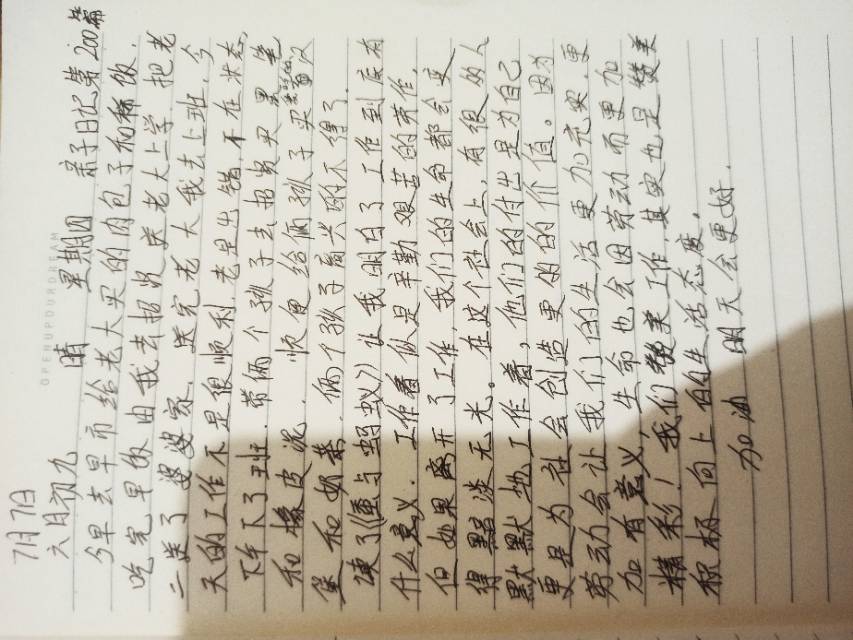 OPENUPOURDREAM
7月7日
六月初九 晴 星期四 亲子日记第200篇
今早去早市给老大买的肉包子和稀饭.
吃完早饭由我去超市送老大上学 把老
二送了婆婆家. 送完老大我去上班, 今
天的工作不是很顺利, 老是出错, 不在状态,
下午下了班. 带俩个孩子去超市买黑笔
和橡皮泥. 顺便给俩孩子买汉
堡和奶茶. 俩个孩子高兴的不得了.
读了《蝗与蚂蚁》让我明白了工作到底有
什么意义. 工作看似是辛勤艰苦的劳作,
但如果离开了工作, 我们的生命都会变
得黯淡无光。在这个社会上, 有很多的人
默默地工作着, 他们的付出是为自己
更是为社会创造更多的价值。因为
劳动会让我们的生活更加充实, 更
加有意义, 生命也会因劳动而更加
精彩! 我们赞美工作, 其实也是赞美
积极向上的生活态度.
加油 明天会更好.